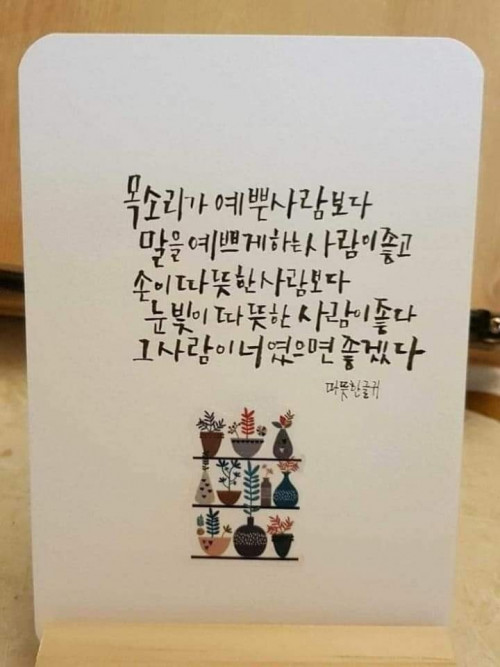 목소리가 예쁜사람보다
말을 예쁘게하는사람이좋고
손이따뜻한사람보다
눈빛이 따뜻한 사람이좋다
그사람이너였으면좋겠다
따뜻한글귀